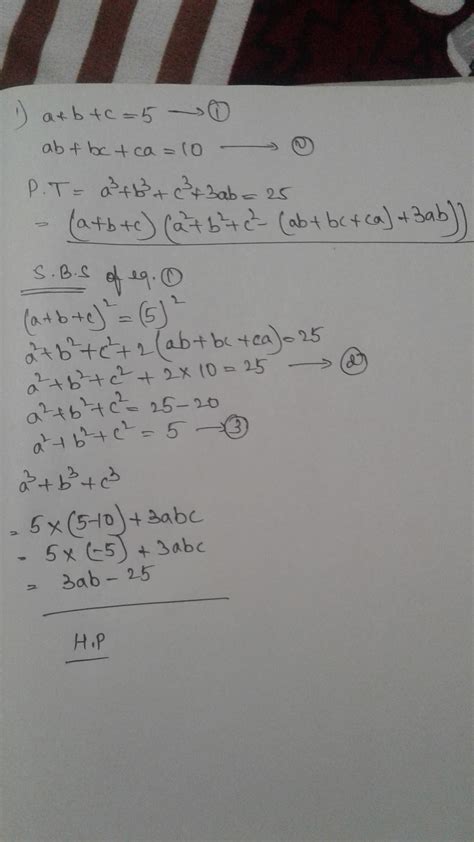 1) a+b+c=5 → ①
ab+bc+ca=10 → ②
P.T = a³+b³+c³+3ab=25
= (a+b+c) (a²+b²+c²-(ab+bc+ca)+3ab))
S.B.S of eq. ①
(a+b+c)² = (5)²
a²+b²+c²+2(ab+bc+ca)=25
a²+b²+c²+2×10=25 → ②
a²+b²+c²=25-20
a²+b²+c²=5 → ③
a³+b³+c³
= 5×(5-10)+3abc
= 5×(-5)+3abc
= 3ab-25
H.P